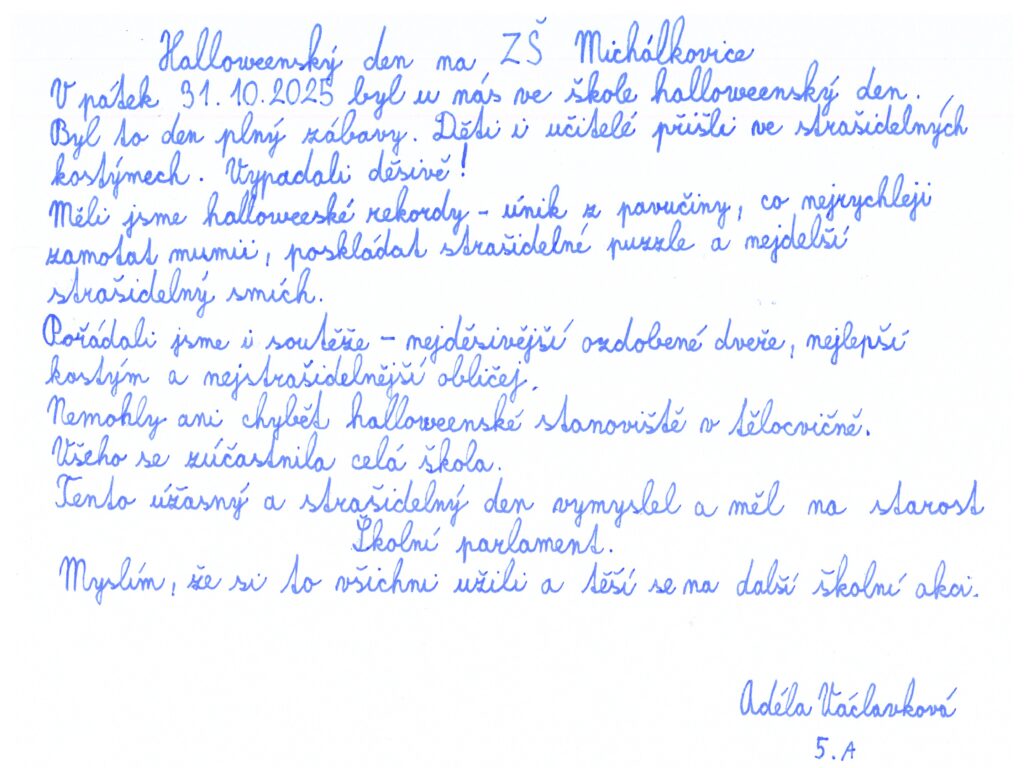 Halloweenský den na ZŠ Michálkovice
V pátek 31.10.2025 byl u nás ve škole halloweenský den.
Byl to den plný zábavy. Děti i učitelé přišli ve strašidelných
kostýmech. Vypadali děsivě!
Měli jsme halloweeské rekordy - únik z pavučiny, co nejrychleji
zamotat mumii, poskládat strašidelné puzzle a nejdelší
strašidelný smích.
Pořádali jsme i soutěže - nejděsivější ozdobené dveře, nejlepší
kostým a nejstrašidelnější obličej.
Nemohly ani chybět halloweenské stanoviště v tělocvičně.
Všeho se zúčastnila celá škola.
Tento úžasný a strašidelný den vymyslel a měl na starost
Školní parlament.
Myslím, že si to všichni užili a těší se na další školní akci.
Adéla Václavková
5.A